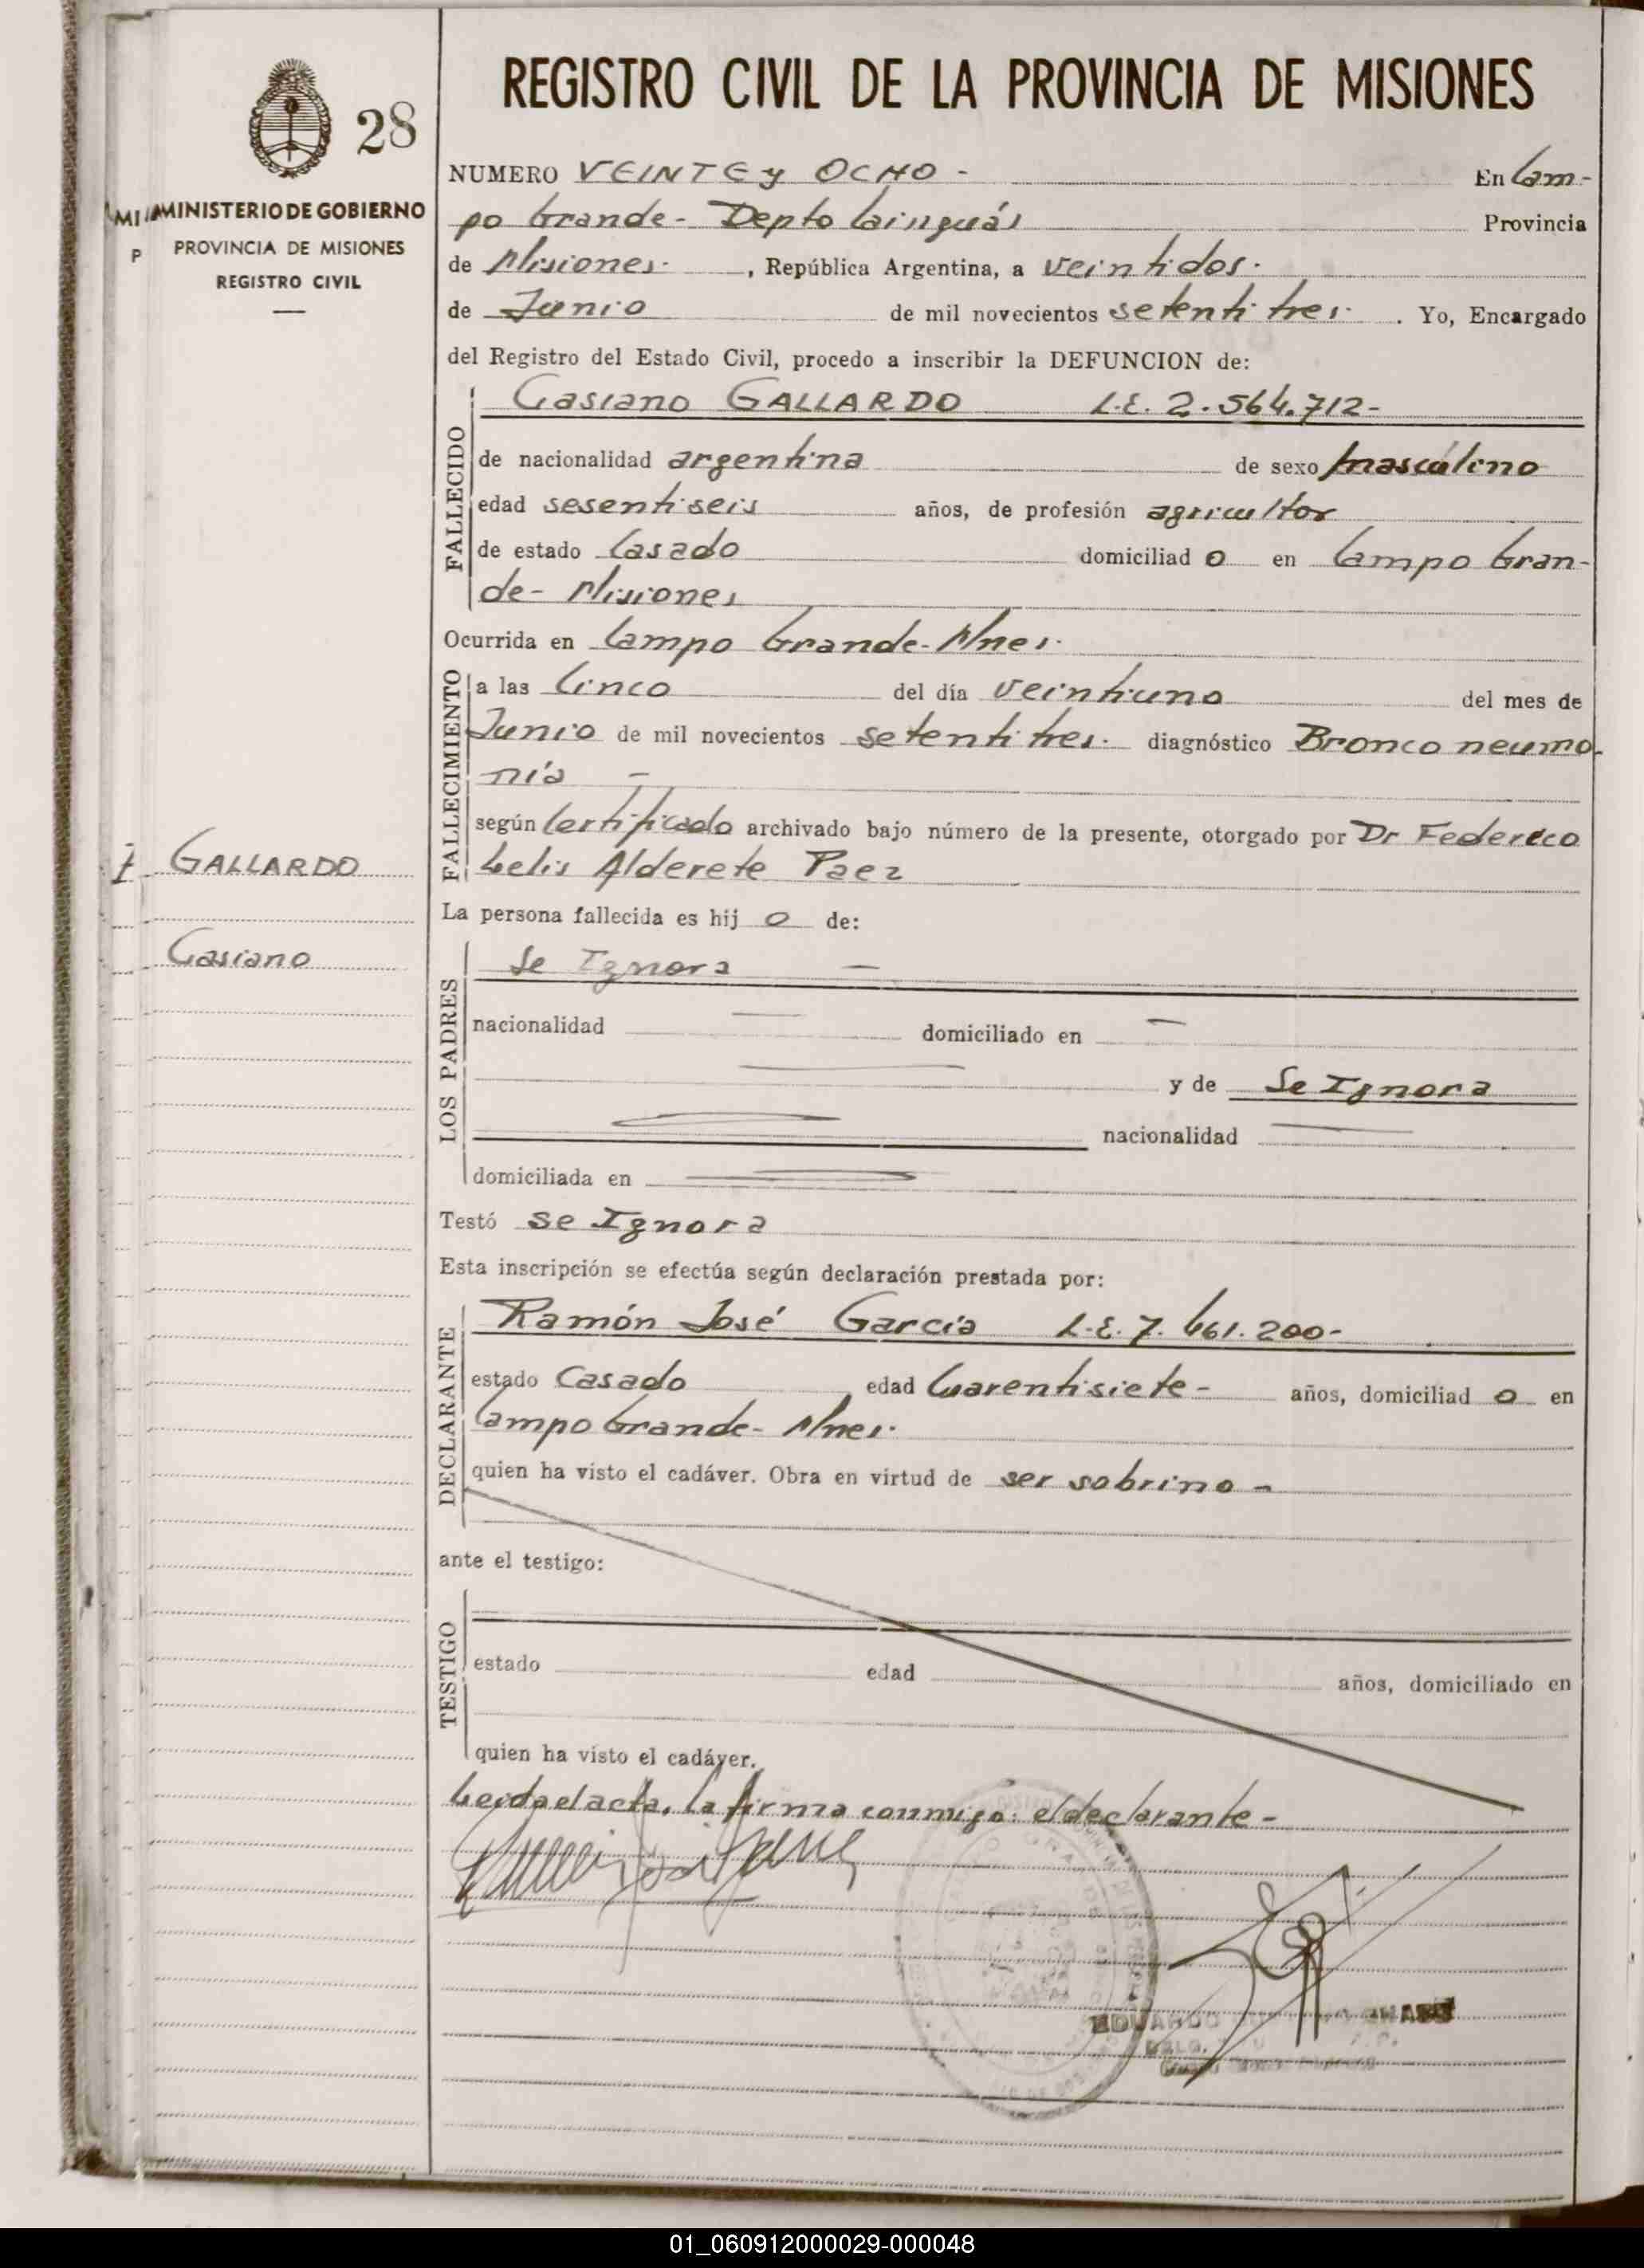 REGISTRO CIVIL DE LA PROVINCIA DE MISIONES
28
MINISTERIO DE GOBIERNO
PROVINCIA DE MISIONES
REGISTRO CIVIL
NUMERO VEINTE y OCHO - En Cam-
po Grande - Depto Cainguás Provincia
de Misiones. , República Argentina, a veintidos.
de Junio de mil novecientos setenti tres. . Yo, Encargado
del Registro del Estado Civil, procedo a inscribir la DEFUNCION de:
FALLECIDO
Casiano GALLARDO L.E. 2.564.712-
de nacionalidad argentina de sexo masculino
edad sesentiseis años, de profesión agricultor
de estado Casado domiciliad o en Campo Gran-
de - Misiones
Ocurrida en Campo Grande - Mnes.
FALLECIMIENTO
a las Cinco del día veintiuno del mes de
Junio de mil novecientos setenti tres. diagnóstico Bronco neumo-
nía -
según Certificado archivado bajo número de la presente, otorgado por Dr Federico
Alderete Paez
GALLARDO
Casiano
La persona fallecida es hij o de:
LOS PADRES
Se Ignora -
nacionalidad — domiciliado en —
y de Se Ignora
nacionalidad —
domiciliada en —
Testó Se Ignora
Esta inscripción se efectúa según declaración prestada por:
DECLARANTE
Ramón José García L.E. 7.461.200-
estado Casado edad Cuarentisiete - años, domiciliad o en
Campo Grande - Mnes.
quien ha visto el cadáver. Obra en virtud de ser sobrino -
ante el testigo:
TESTIGO
estado edad años, domiciliado en
quien ha visto el cadáver.
Leida el acta, la firma conmigo: el declarante -
EDUARDO
01_060912000029-000048